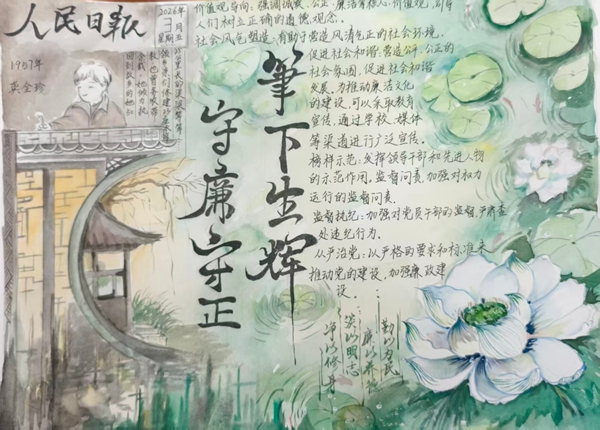 人民日报
2026年
3月五
星期
1957年
价值观导向：强调诚实、公正、廉洁等核心价值观，引导
人们树立正确的道德观念。
社会风气塑造：有助于营造风清气正的社会环境，
促进社会和谐，营造公平、公正的
社会氛围，促进社会和谐
发展。为推动廉洁文化
的建设，可以采取教育
宣传：通过学校、媒体
等渠道进行广泛宣传。
榜样示范：发挥领导干部和先进人物
的示范作用，监督问责，加强对权力
运行的监督问责。
监督执纪：加强对党员干部的监督，严肃查
处违纪行为。
从严治党：以严格的要求和标准来
推动党的建设，加强廉政建
设。
筆下生輝
守廉守正
勤以为民
廉以养德
以明志
以修身